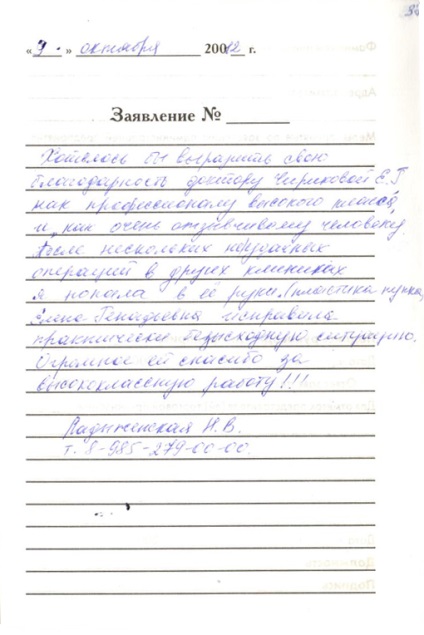 38
« 9. » октября 20012 г.
Заявление № ______
Хотелось бы выразить свою
благодарность доктору Чириковой Е.Г.
как профессионалу высокого класса,
и, как очень отзывчивому человеку.
После нескольких неудачных
операций в других клиниках
я попала в её руки. (пластика пупка,
Елена Генадьевна исправила
практически безысходную ситуацию.
Огромное ей спасибо за
высококлассную работу!!!
Н.В.
т. 8-985-279-00-00.